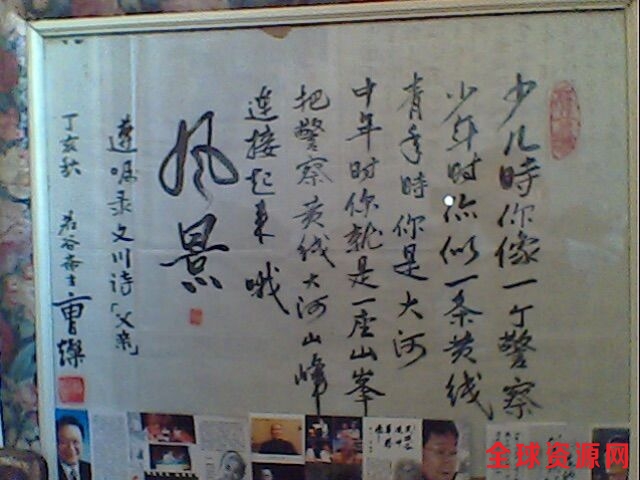 少儿時你像一个警察
少年时你似一条黄线
青年時你是大河
中年时你就是一座山峯
把警察黄线大河山峰
连接起来哦
风景
遵嘱录文川诗「父亲」
丁亥秋
全球资源网